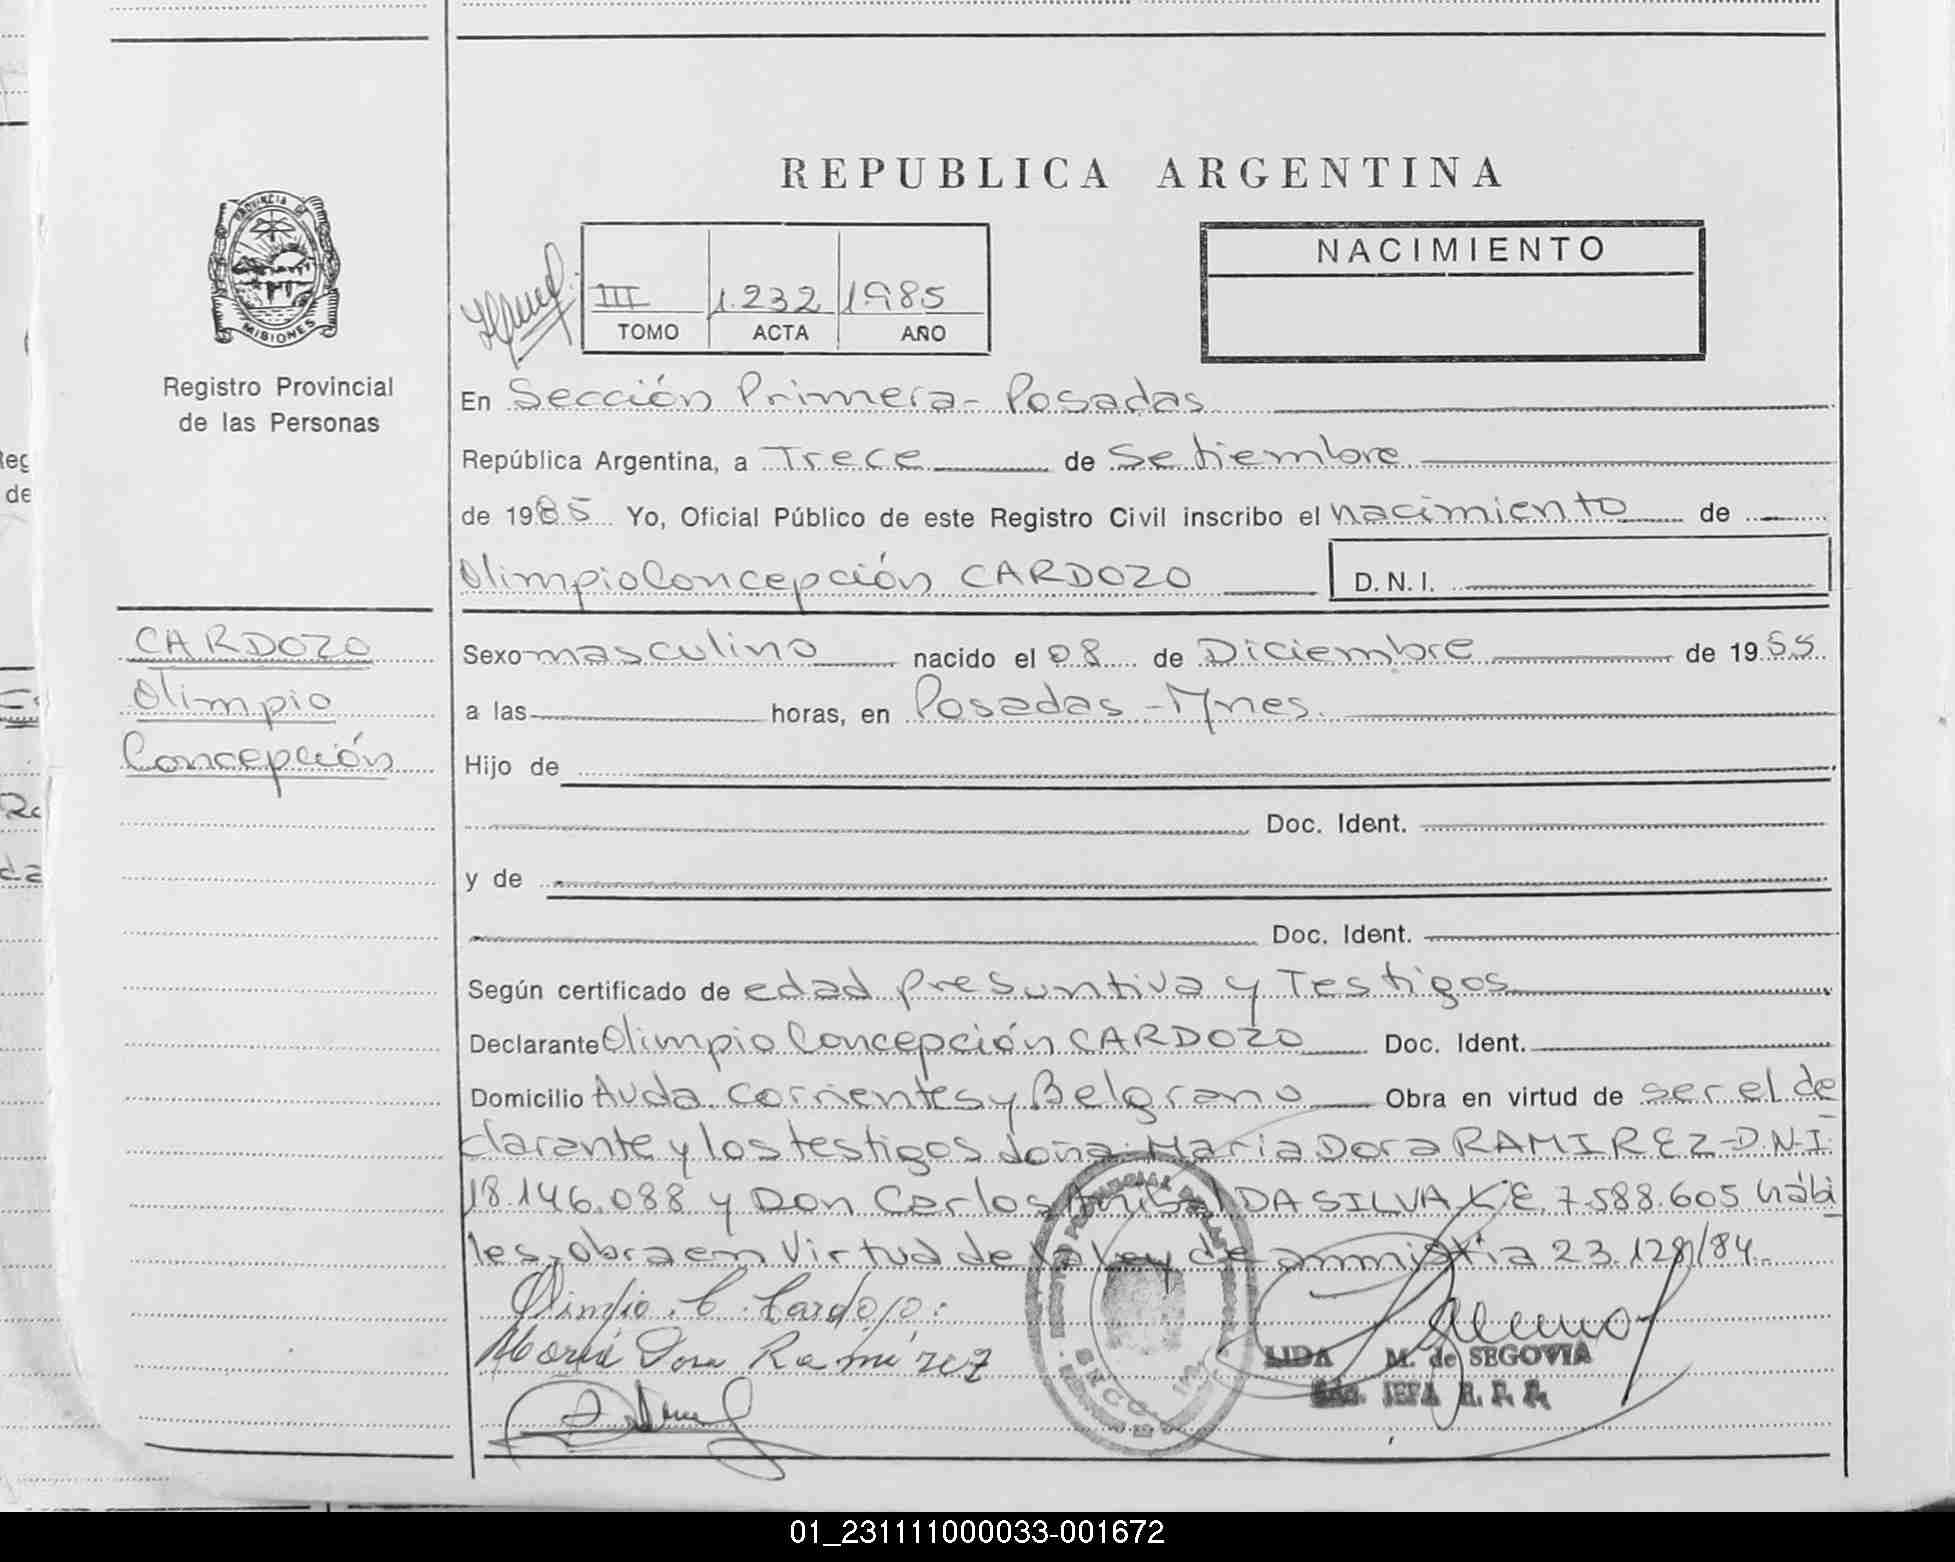 REPUBLICA ARGENTINA
PROVINCIA DE
MISIONES
Registro Provincial
de las Personas
III 1.232 1985
TOMO ACTA AÑO
NACIMIENTO
En Sección Primera - Posadas
República Argentina, a Trece de Setiembre
de 1985 Yo, Oficial Público de este Registro Civil inscribo el nacimiento de
Olimpio Concepción CARDOZO D.N.I.
CARDOZO
Olimpio
Concepción
Sexo masculino nacido el 08 de Diciembre de 1955
a las horas, en Posadas - Mnes.
Hijo de
Doc. Ident.
y de
Doc. Ident.
Según certificado de edad presuntiva y Testigos
Declarante Olimpio Concepción CARDOZO Doc. Ident.
Domicilio Avda. Corrientes y Belgrano Obra en virtud de ser el de
clarante y los testigos doña María Dora RAMIREZ - D.N.I.
18.146.088 y Don Carlos Anibal DA SILVA L.E. 7.588.605 hábi
les, obra en Virtud de la ley de ammistia 23.128/84.
Olimpio. C. Cardozo.
María Dora Ramírez
LIDA M. de SEGOVIA
JEFA R. P. P.
01_231111000033-001672